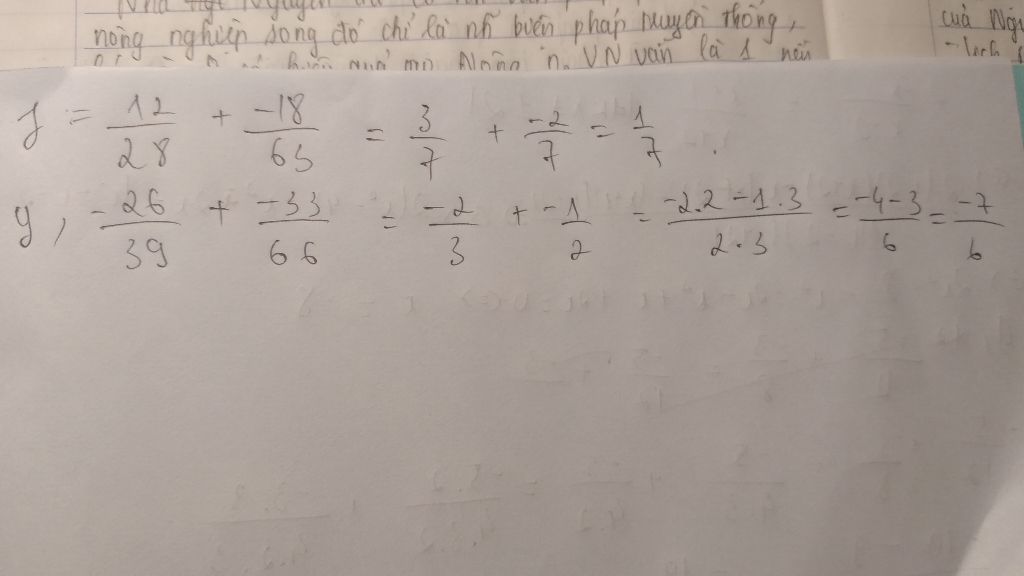 nông nghiệp song đó chỉ là nh~ biện pháp truyền thống,
VN vẫn là 1 nền
của
f = 12/28 + -18/63 = 3/7 + -2/7 = 1/7 .
y, -26/39 + -33/66 = -2/3 + -1/2 = -2.2-1.3/2.3 = -4-3/6 = -7/6